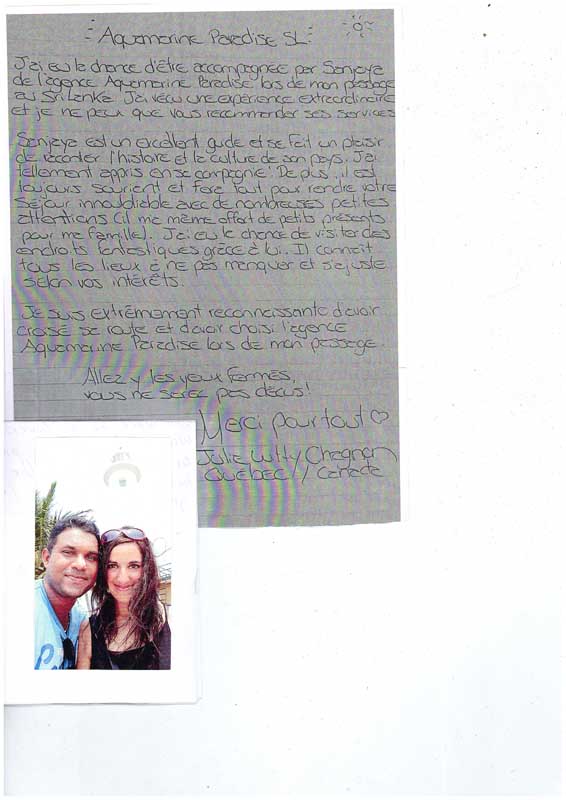 Aquamarine Paradise SL
J'ai eu la chance d'être accompagnée par Sanjaya
de l'agence Aquamarine Paradise lors de mon passage
au Sri Lanka. J'ai vécu une expérience extraordinaire
et je ne peux que vous recommander ses services
Sanjaya est un excellent guide et se fait un plaisir
de raconter l'histoire et la culture de son pays. J'ai
tellement appris en sa compagnie! De plus, il est
toujours souriant et fera tout pour rendre votre
séjour innoubliable avec de nombreuses petites
attentions (il m'a même offert de petits présents
pour ma famille). J'ai eu la chance de visiter des
endroits fantastiques grâce à lui. Il connaît
tous les lieux à ne pas manquer et s'ajuste
selon vos intérêts.
Je suis extrêmement reconnaissante d'avoir
croisé sa route et d'avoir choisi l'agence
Aquamarine Paradise lors de mon passage.
Allez y les yeux fermés,
vous ne serez pas déçus!
Merci pour tout ♡
Julie Witty Chagnon
Québec / Canada